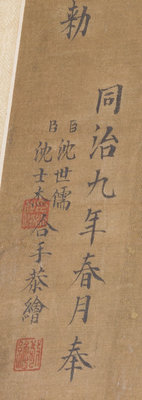 同治九年春月奉
勅
臣沈世儒
臣沈士杰合手恭繪